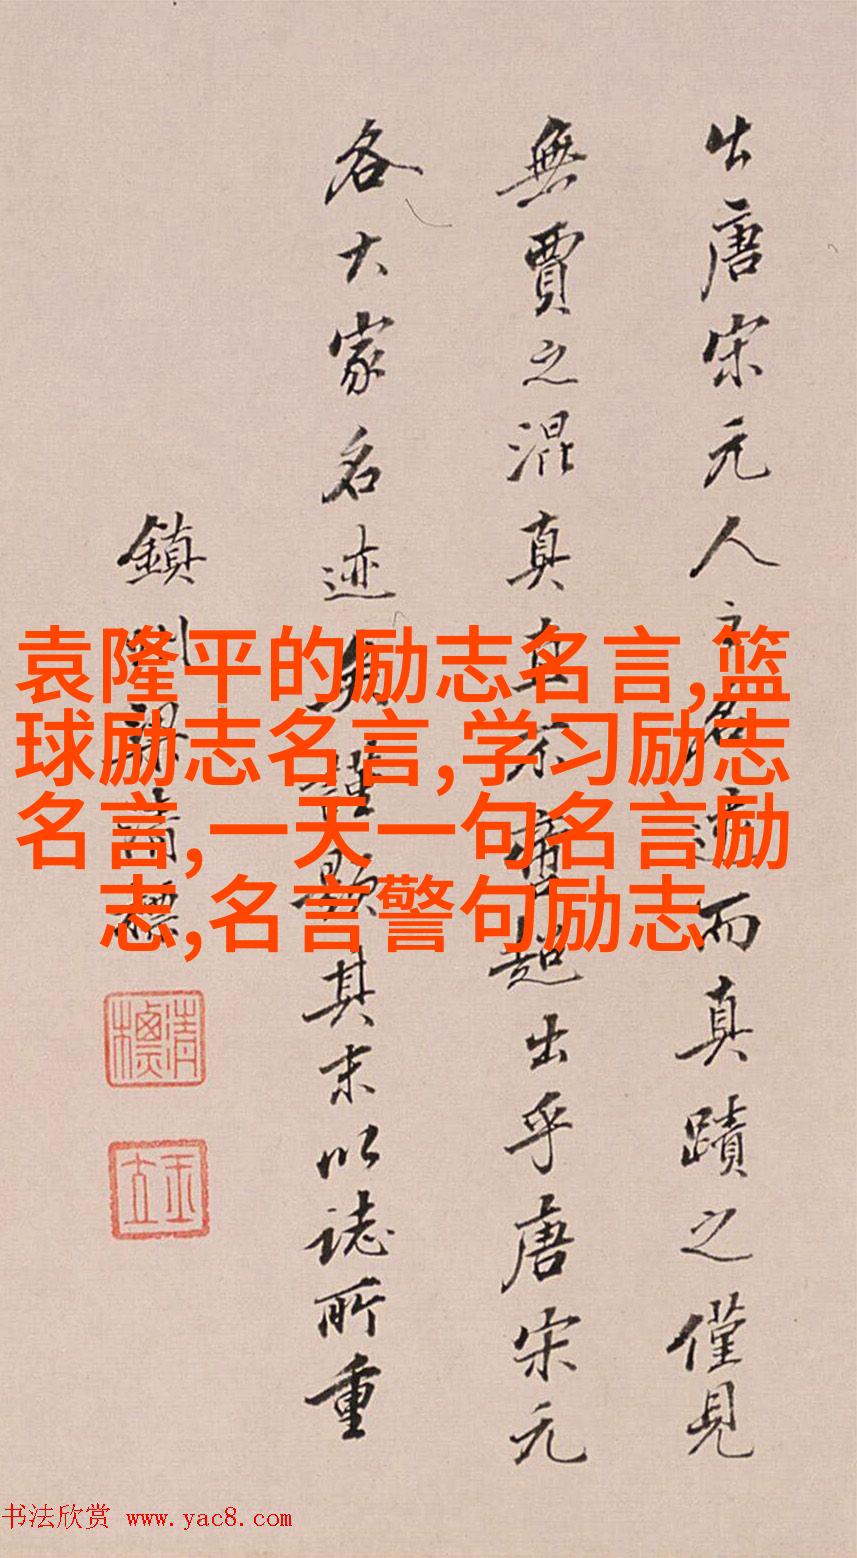 出唐宋元人之名迹而真蹟之僅見
無賈之混真直不啻超出乎唐宋元
各大家名迹矣謹題其末以誌所重
鎮州梁清標
清標
玉立
袁隆平的励志名言,篮
球励志名言,学习励志
名言,一天一句名言励
志,名言警句励志
书法欣赏 www.yac8.com